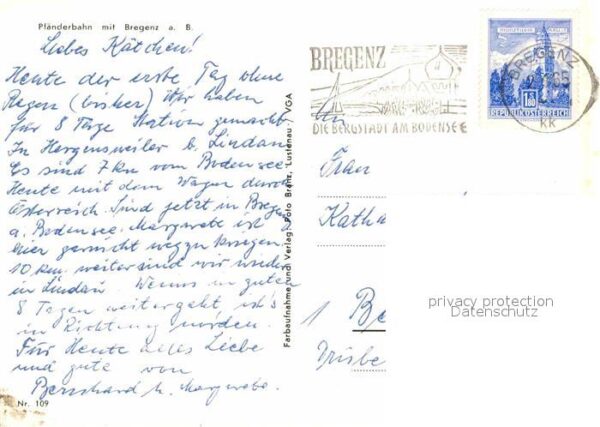 Pfänderbahn mit Bregenz a. B.
Liebes Kätchen!
Heute der erste Tag ohne
Regen (bisher) Wir haben
für 8 Tage Station gemacht
In Hergensweiler b. Lindau.
Es sind 7 km vom Bodensee.
Heute mit dem Wagen durch
Österreich. Sind jetzt in Breg.
a. Bodensee. Margarete ist
hier garnicht weg zu kriegen.
10 km. weiter sind wir wieder
in Lindau. Wenns in guten
8 Tagen weitergeht
in Richtung Norden.
Für Heute alles Liebe
und gute von
Bernhard u. Margarete.
Nr. 109
Farbaufnahme und Verlag: Foto Branz, Lustenau VGA
BREGENZ
DIE BERGSTADT AM BODENSEE
BREGENZ
65
KK
1.80
REPUBLIK ÖSTERREICH
An
Frau
Katha
1 Be
Drisbe
privacy protection
Datenschutz